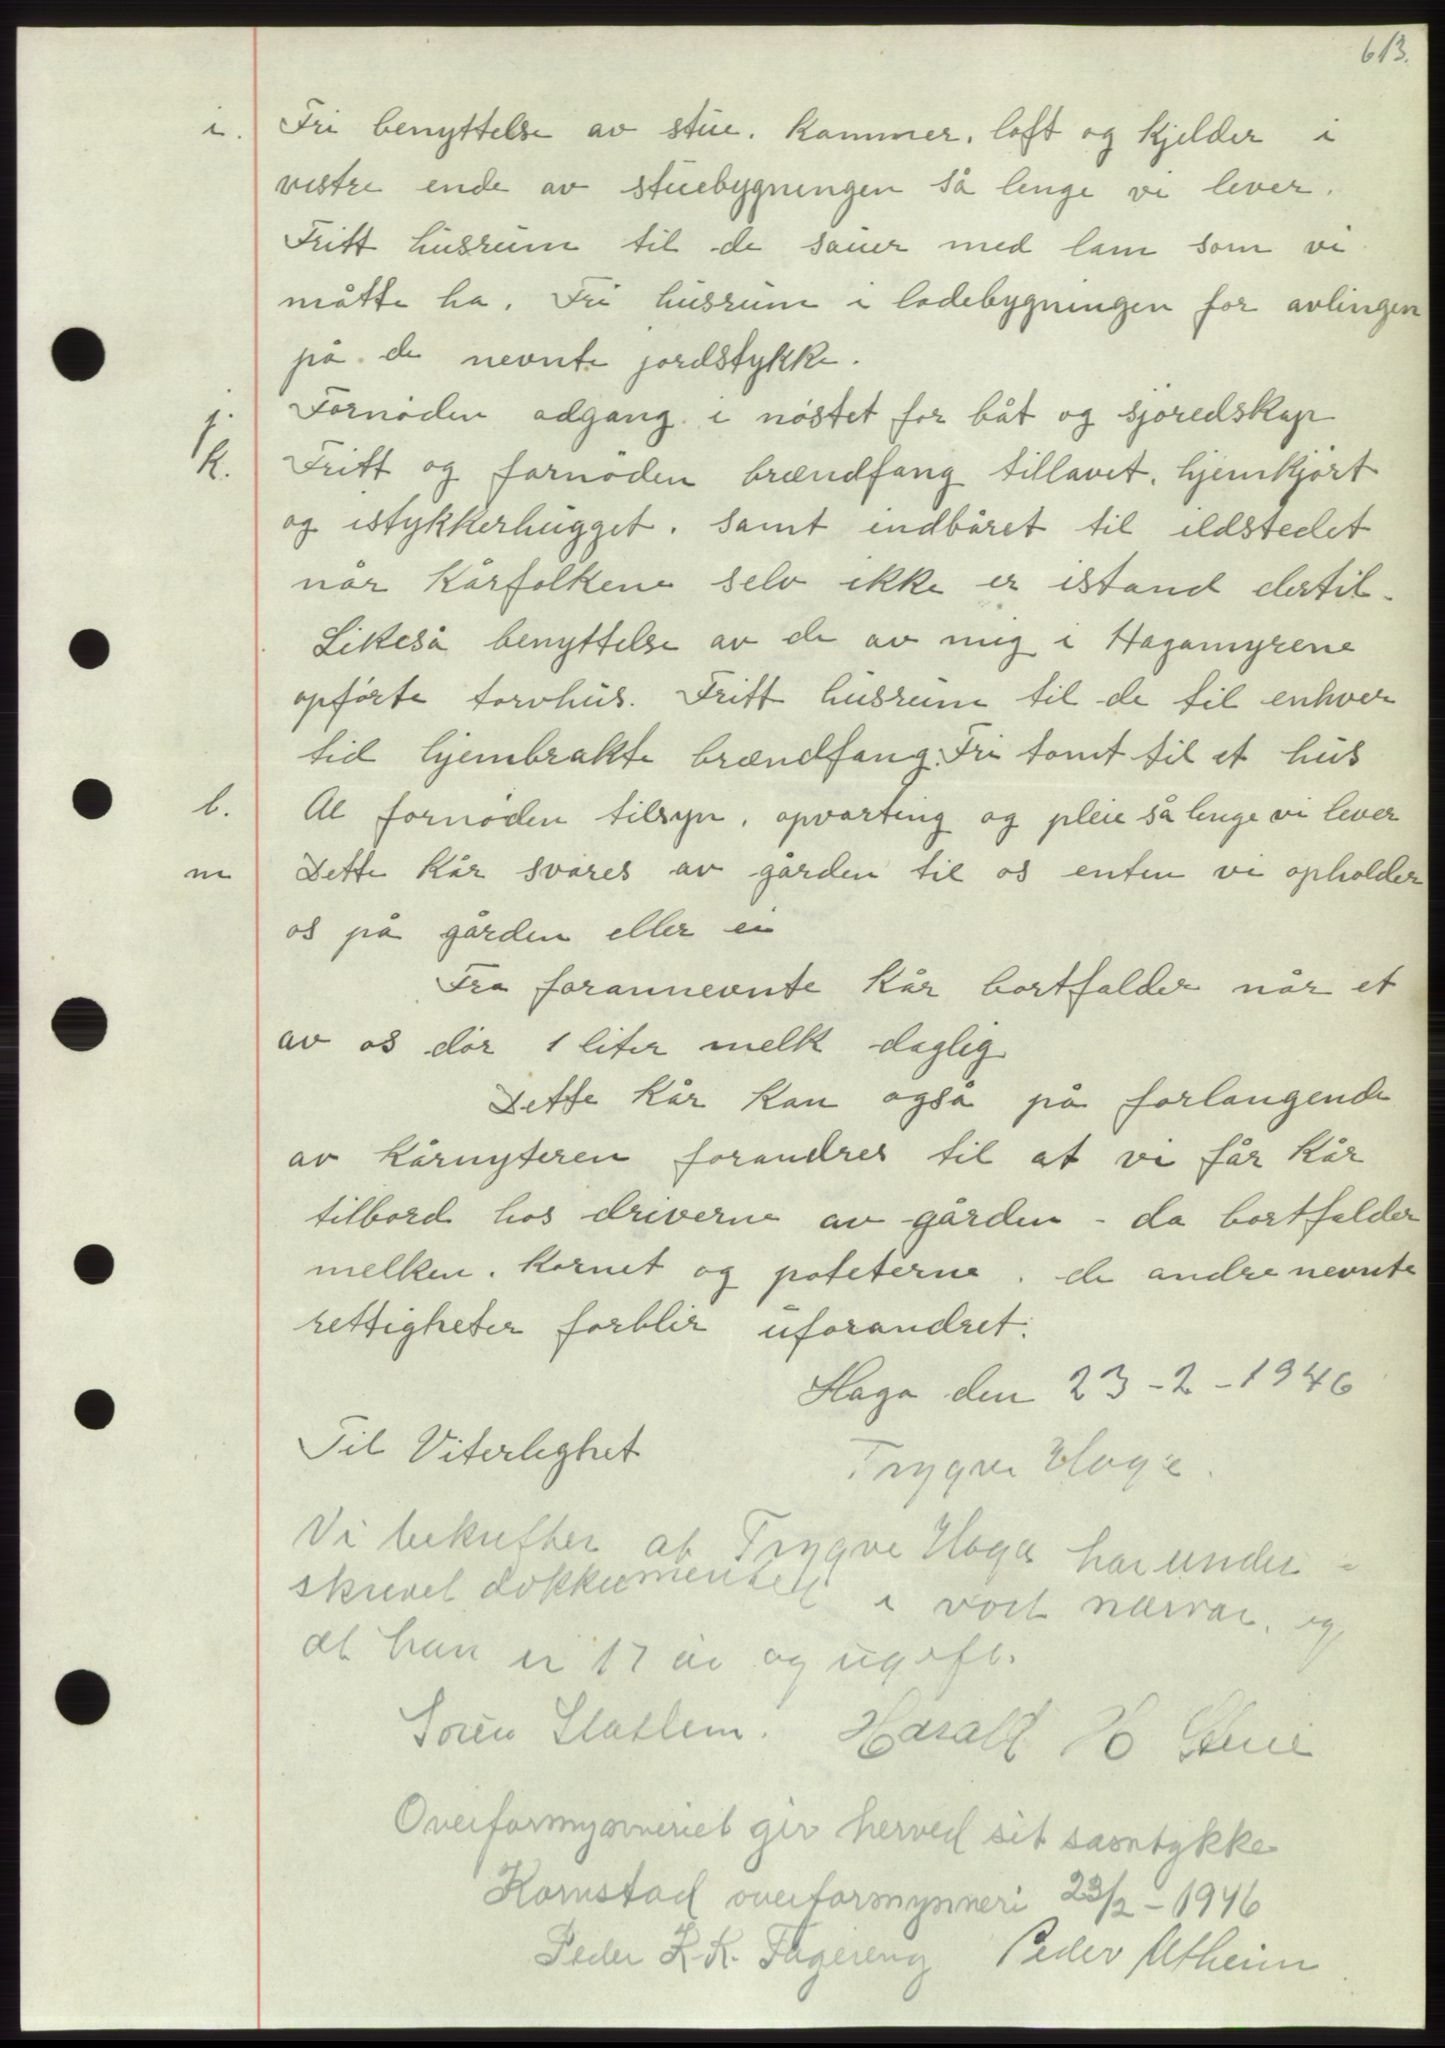 613.
i. Fri benyttelse av stue. kammer. loft og kjelder i
vestre ende av stuebygningen så lenge vi lever.
Fritt husrum til de sauer med lam som vi
måtte ha. Fri husrum i ladebygningen for avlingen
på de nevnte jordstykke.
j. Fornøden adgang i nøstet for båt og sjøredskap
k. Fritt og fornøden brændfang tillavet. hjemkjørt
og istykkerhugget. samt indbåret til ildstedet
når kårfolkene selv ikke er istand dertil.
Likeså benyttelse av de av mig i Hagamyrene
opførte torvhus. Fritt husrum til de til enhver
tid hjembrakte brændfang. Fri tomt til et hus
l. Al fornøden tilsyn. opvarting og pleie så lenge vi lever
m Dette kår svares av gården til os enten vi opholder
os på gården eller ei
Fra forannevnte kår bortfalder når et
av os dør 1 liter melk daglig
Dette kår kan også på forlangende
av kårnyteren forandres til at vi får kår
tilbord hos driverne av gården - da bortfalder
melken. kornet og poteterne. de andre nevnte
rettigheter forblir uforandret.
Haga den 23-2-1946
Til Viterlighet
Trygve Haga.
Vi bekrefter at Trygve Haga har under-
skrevet dokkumentet i vort nærvær, og
at han er 17 år og ugift.
Søren Harald H
Overformynneriet gir herved sit samtykke
Kornstad overformynneri 23/2-1946
Peder K.K. Fagereng Peder Utheim